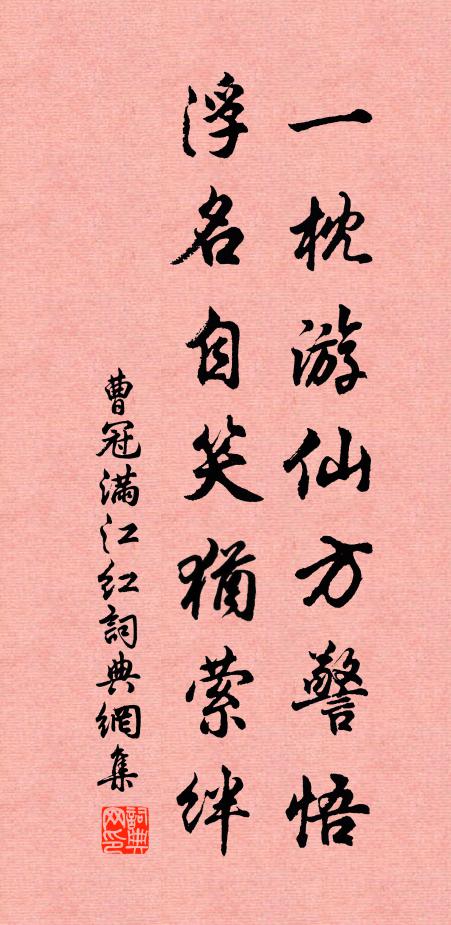 一枕游仙方警悟
浮名自笑犹萦绊
曹冠满江红詞典網集
詞典网印